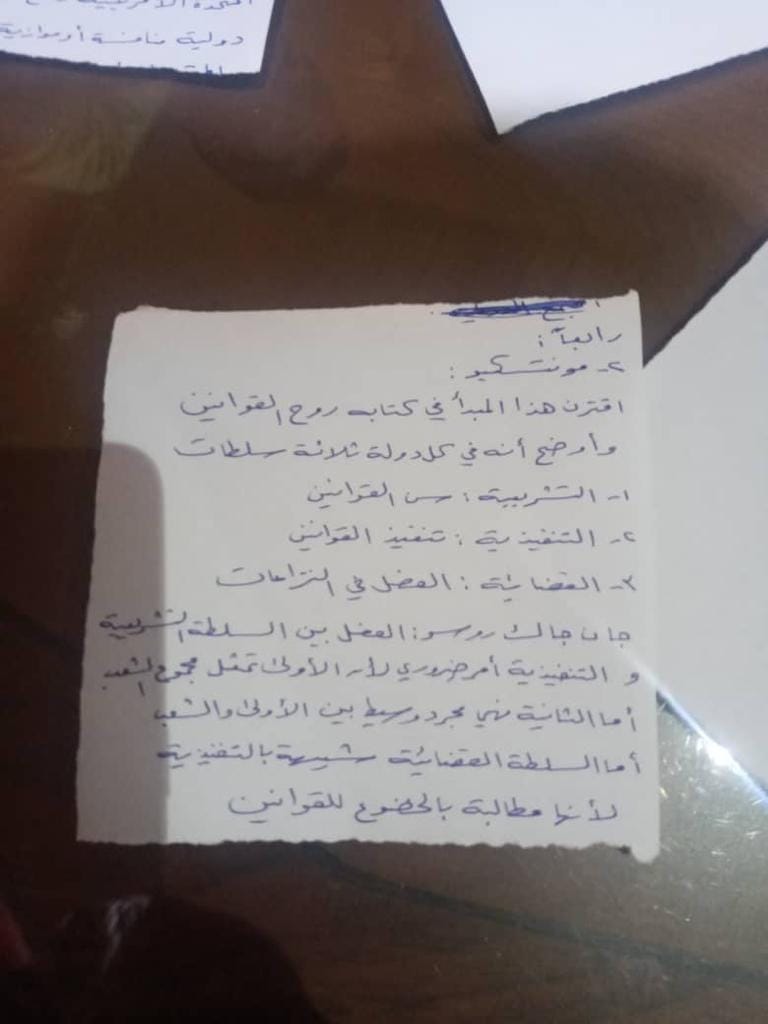 دولية منافسة أو موازية
رابعاً:
٢- مونتسكيو:
اقترن هذا المبدأ في كتابه روح القوانين
وأوضح أنه في كل دولة ثلاثة سلطات
١- التشريعية: سن القوانين
٢- التنفيذية: تنفيذ القوانين
٣- القضائية: الفصل في النزاعات
جان جاك روسو: الفصل بين السلطة التشريعية
و التنفيذية أمر ضروري لأن الأولى تمثل مجموع الشعب
أما الثانية فهي مجرد وسيط بين الأولى والشعب
أما السلطة القضائية شبيهة بالتنفيذية
لأنها مطالبة بالخضوع للقوانين